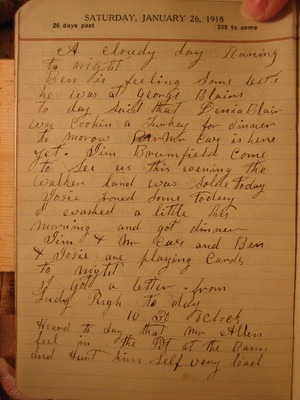 SATURDAY, JANUARY 26, 1918
26 days past 339 to come
A cloudy day Raning
to night
Ben is feeling some bets
he was at George Blairs
to day said that Denia Blair
was Cookin a Turkey for dinner
to morow Mr Ears is here
yet. Jim Brumfield come
to See us this evening the
Walker land was sold today
Josie Ironed some today
I washed a little this
morning and got dinner
Jim & Mr Ears and Ben
& Josie are playing Cards
to night
I got a letter from
Pugh to day
10 30 oclock
Heard to day that Mr Allen
fell in the Pit at the Barn
and Hurt him Self very bad